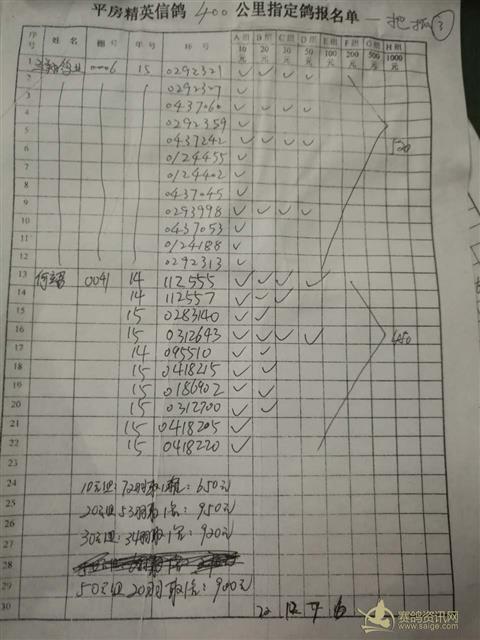 平房精英信鸽400公里指定鸽报名单
序号 姓名 棚号 年号 环号 A组10元 B组20元 C组30元 D组50元 E组100元 F组200元 G组500元 H组1000元
1 0006 15 0292321 ✓ ✓ ✓ ✓
2 0292307 ✓
3 0437060 ✓ ✓ ✓ ✓
4 0292359 ✓
5 0437242 ✓ ✓ ✓ ✓
6 0124455 ✓
7 0124402 ✓
8 0437045 ✓
9 0293998 ✓ ✓ ✓ ✓
10 0437053 ✓
11 0124188 ✓
12 0292313 ✓
13 0041 14 112555 ✓ ✓ ✓ ✓
14 14 112557 ✓ ✓ ✓
15 15 0283140 ✓ ✓
16 15 0312643 ✓ ✓ ✓ ✓
17 14 095510 ✓ ✓
18 15 0418215 ✓ ✓
19 15 0186902 ✓ ✓
20 15 0312700 ✓ ✓
21 15 0418205 ✓
22 15 0418220 ✓
450
24 10元组:72羽取1名:650元
25 20元组53羽取1名:950元
26 30元组:34羽取1名:920元
28
29 50元组20羽取1名:900元
30
赛鸽资讯网
www.saige.com